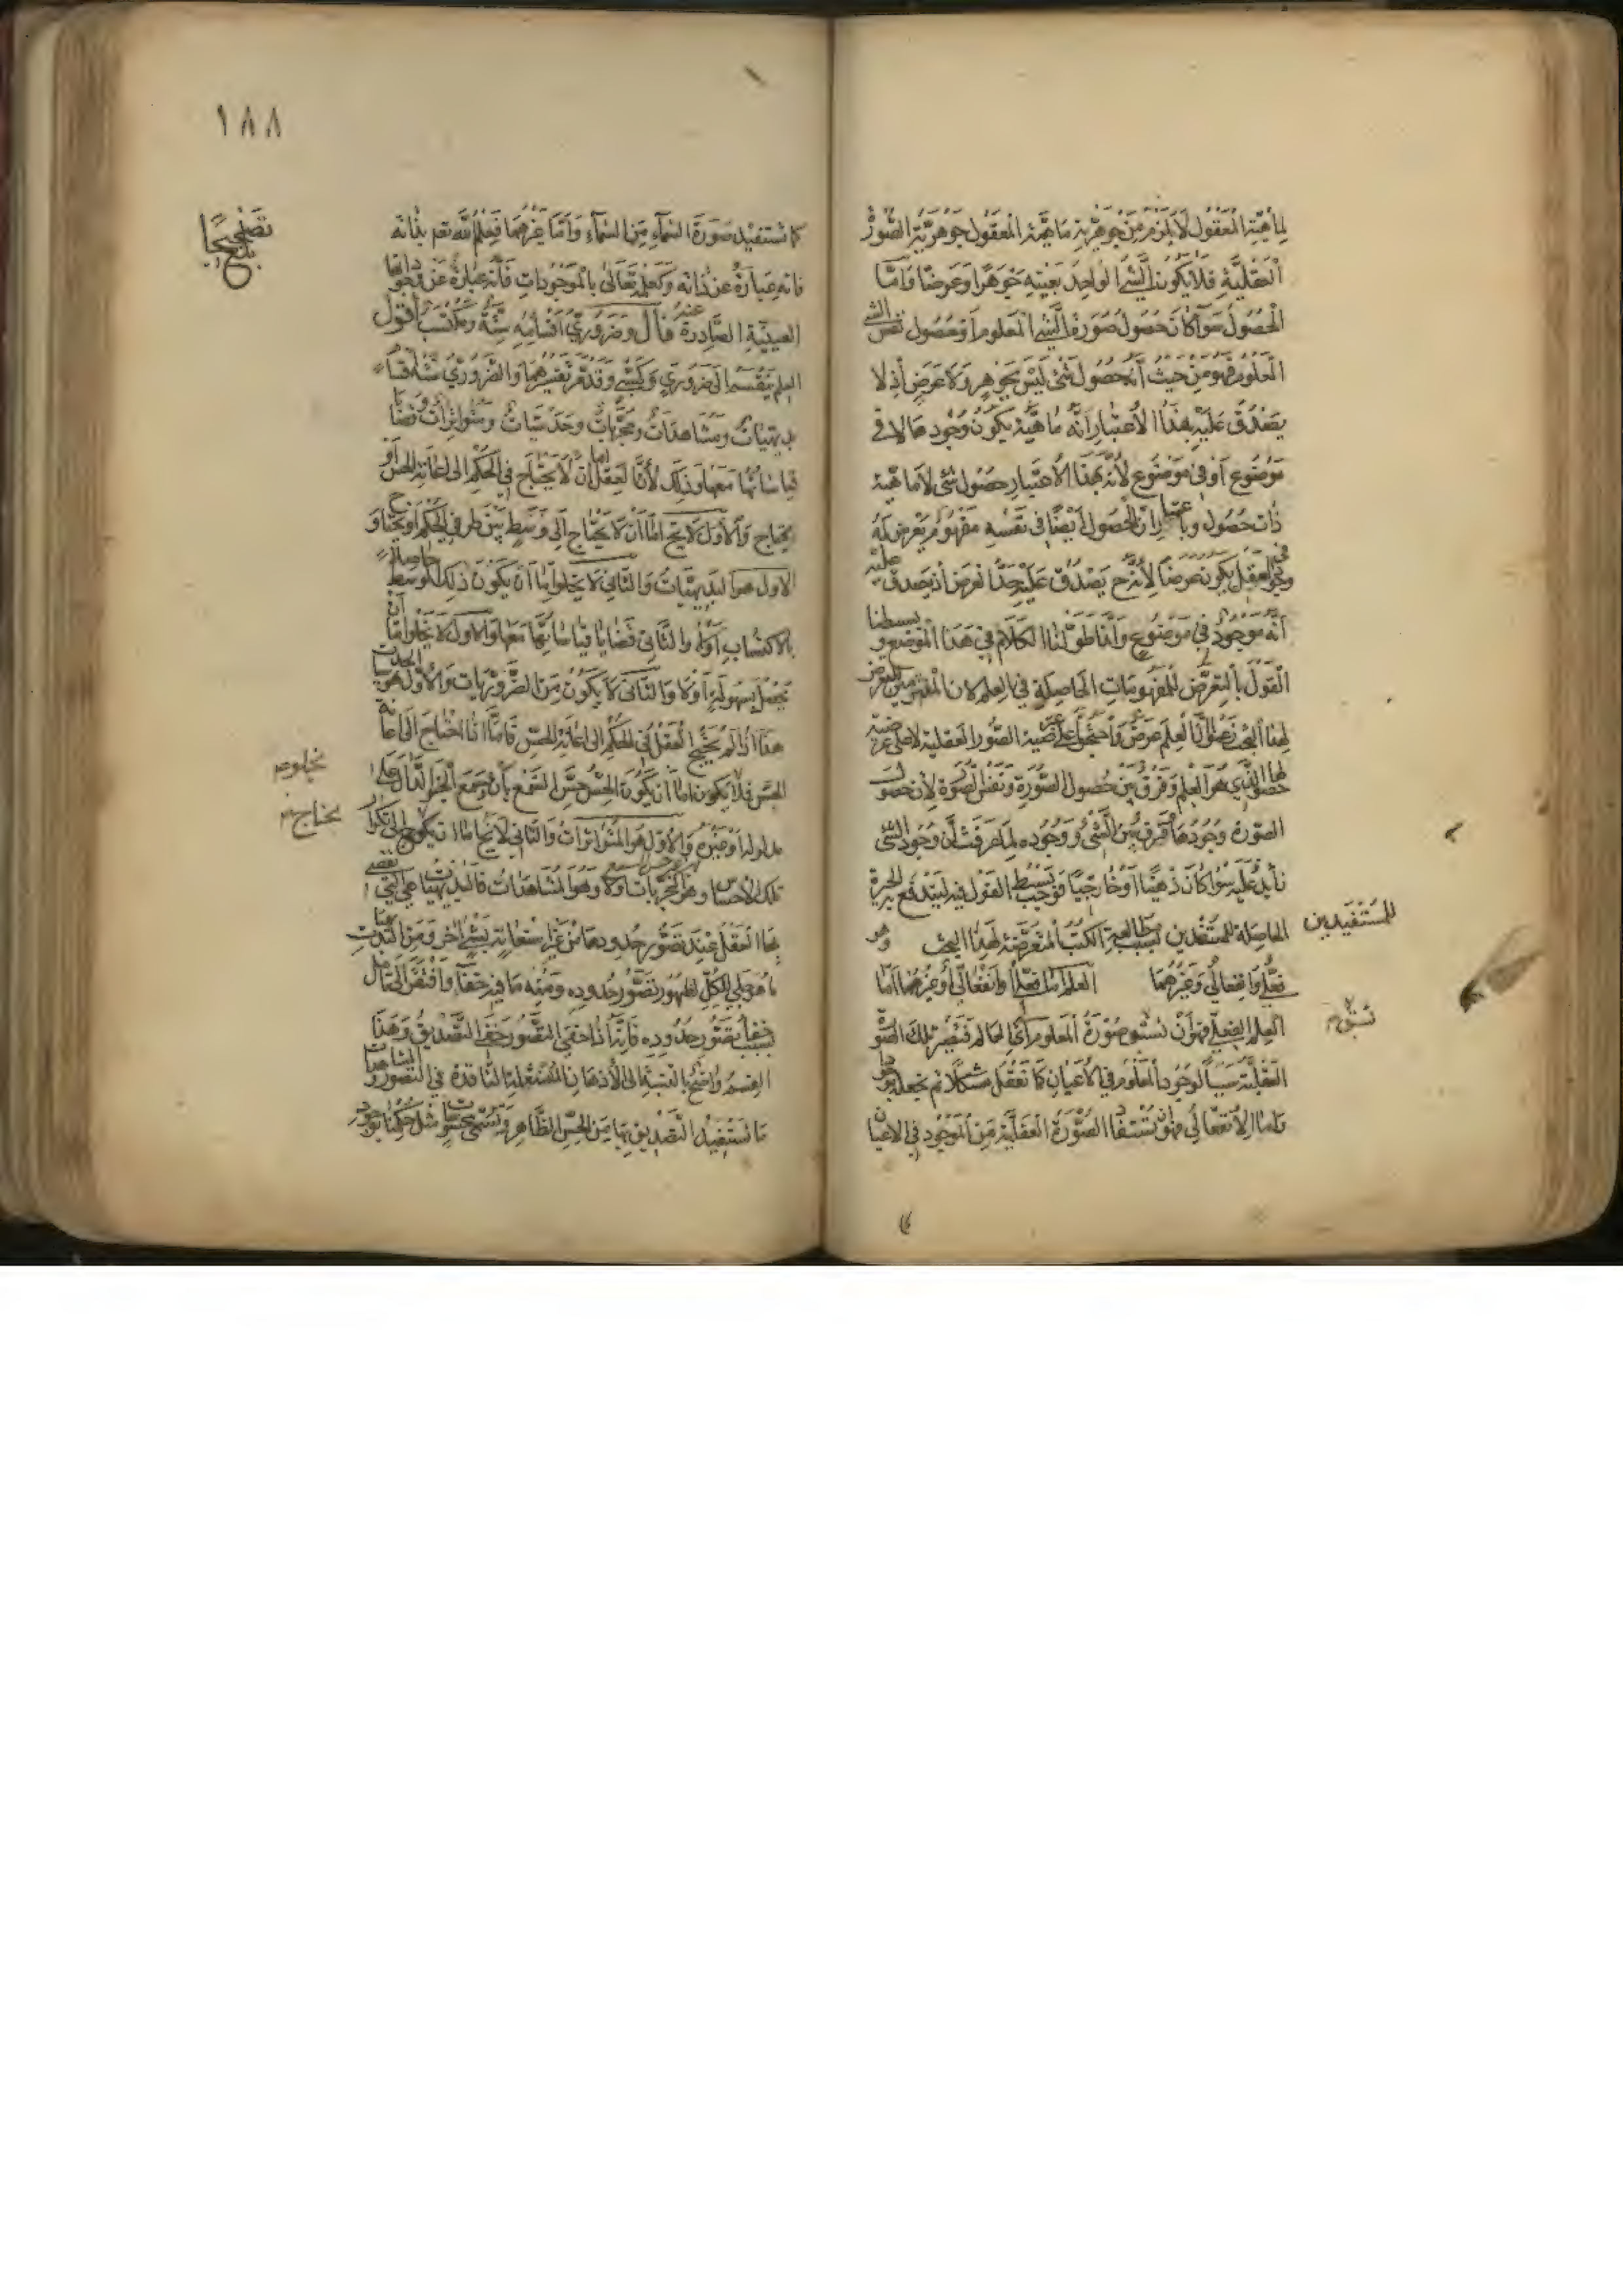 لماهية المعقول لا يلزم من جوهرية ماهية المعقول جوهرية الصور
العقلية فلا يكون الشي الواحد بعينه جوهرا وعرضا واما
الحصول سوا كان حصول صورة الشي المعلوم او حصول نفس الشي
المعلوم فهو من حيث انه حصول شي ليس بجوهر ولا عرض اذ لا
يصدق عليه بهذا الاعتبار انه ماهية يكون وجودها لا في
موضوع او في موضوع لانه بهذا الاعتبار حصول شي لا ماهية
ذات حصول وباعتبار ان الحصول ايضا في نفسه مفهوم يعرض له
في العقل يكون عرضا لانه ح يصدق عليه حد العرض اذ يصدق عليه
انه موجود في موضوع وانما طولنا الكلام في هذا الموضع وبسطنا
القول بالتعرض للمفهومات الحاصلة في العلم لان
لهذا البحث ان العلم عرض على عرضية الصور العقلية لا على عرضية
حصولها الذي هو العلم وفرق بين حصول الصورة ونفس الصورة لان حصول
الصورة وجودها وفرق بين الشي ووجوده لما عرفت ان وجود الشي
زايد عليه سوا كان ذهنيا او خارجيا فوجب بسط القول فيه ليندفع به الحيرة
الحاصلة للمستفيدين بسبب مطالعة الكتب المتعرضة لهذا البحث وهو
للمستفيدين
فعلي وانفعالي وغيرهما العلم اما فعلي او انفعالي او غيرهما اما
العلم الفعلي فهو ان صورة المعلوم الى العالم فتصير تلك الصورة
العقلية سببا لوجود المعلوم في الاعيان كما نعقل شكلا ثم نجعله موجودا
واما الانفعالي فهو ان يستفاد الصورة العقلية من الموجود في الاعيان
١٨٨
كما نستفيد صورة السماء من السماء واما غيرهما فعلم الله تع بذاته
فانه عبارة عن ذاته وكعلمه تعالى بالموجودات فانه عبارة عن ذواتها
العينية الصادرة عنه قال وضروري اقسامه ستة ومكتسب اقول
العلم ينقسم الى ضروري وكسبي وقد مر تفسيرهما والضروري ستة اقسام
بديهيات ومشاهدات ومجربات وحدسيات ومتواترات وقضايا
قياساتها معها وذلك لان العقل اما ان لا يحتاج في الحكم الى اعانة الحس او
يحتاج والاول لا يخ اما ان لا يحتاج الى وسط في الحكم او يحتاج و
الاول هو البديهيات والثاني لا يخلو اما ان يكون ذلك الوسط حاصلا
بالاكتساب اولا والثاني قضايا قياساتها معها والاول لا يخلو اما ان
يحصل بسهولة اولا والثاني لا يكون من الضروريات والاول هو الحدسيات
هذا اذا لم يحتج العقل في الحكم الى اعانة الحس فاما اذا احتاج الى اعانة
الحس فلا يكون اما ان يكون الحس حس السمع بان يسمع الخبر الدال على
يخلو
مدلوله او غيره والاول هو المتواترات والثاني لا يخ اما ان يكون الى تكرار
يحتاج
تلك الاحساسات وهو المجربات اولا وهو المشاهدات فالبديهيات هي التي يقضي
بها العقل عند تصور حدودها من غير استعانة بشي اخر ومن البديهيات
ما هو جلي للكل لظهور تصور حدوده ومنه ما فيه خفا وافتقر الى تأمل
بسبب خفا تصور حدوده فانه اذا خفي التصور خفي التصديق وهذا
القسم واضح بالنسبة الى الاذهان المشتعلة النافذة في التصور والمشاهدات
ما نستفيد التصديق بها من الحس الظاهر وتسمى محسوسات مثل حكمنا بوجود